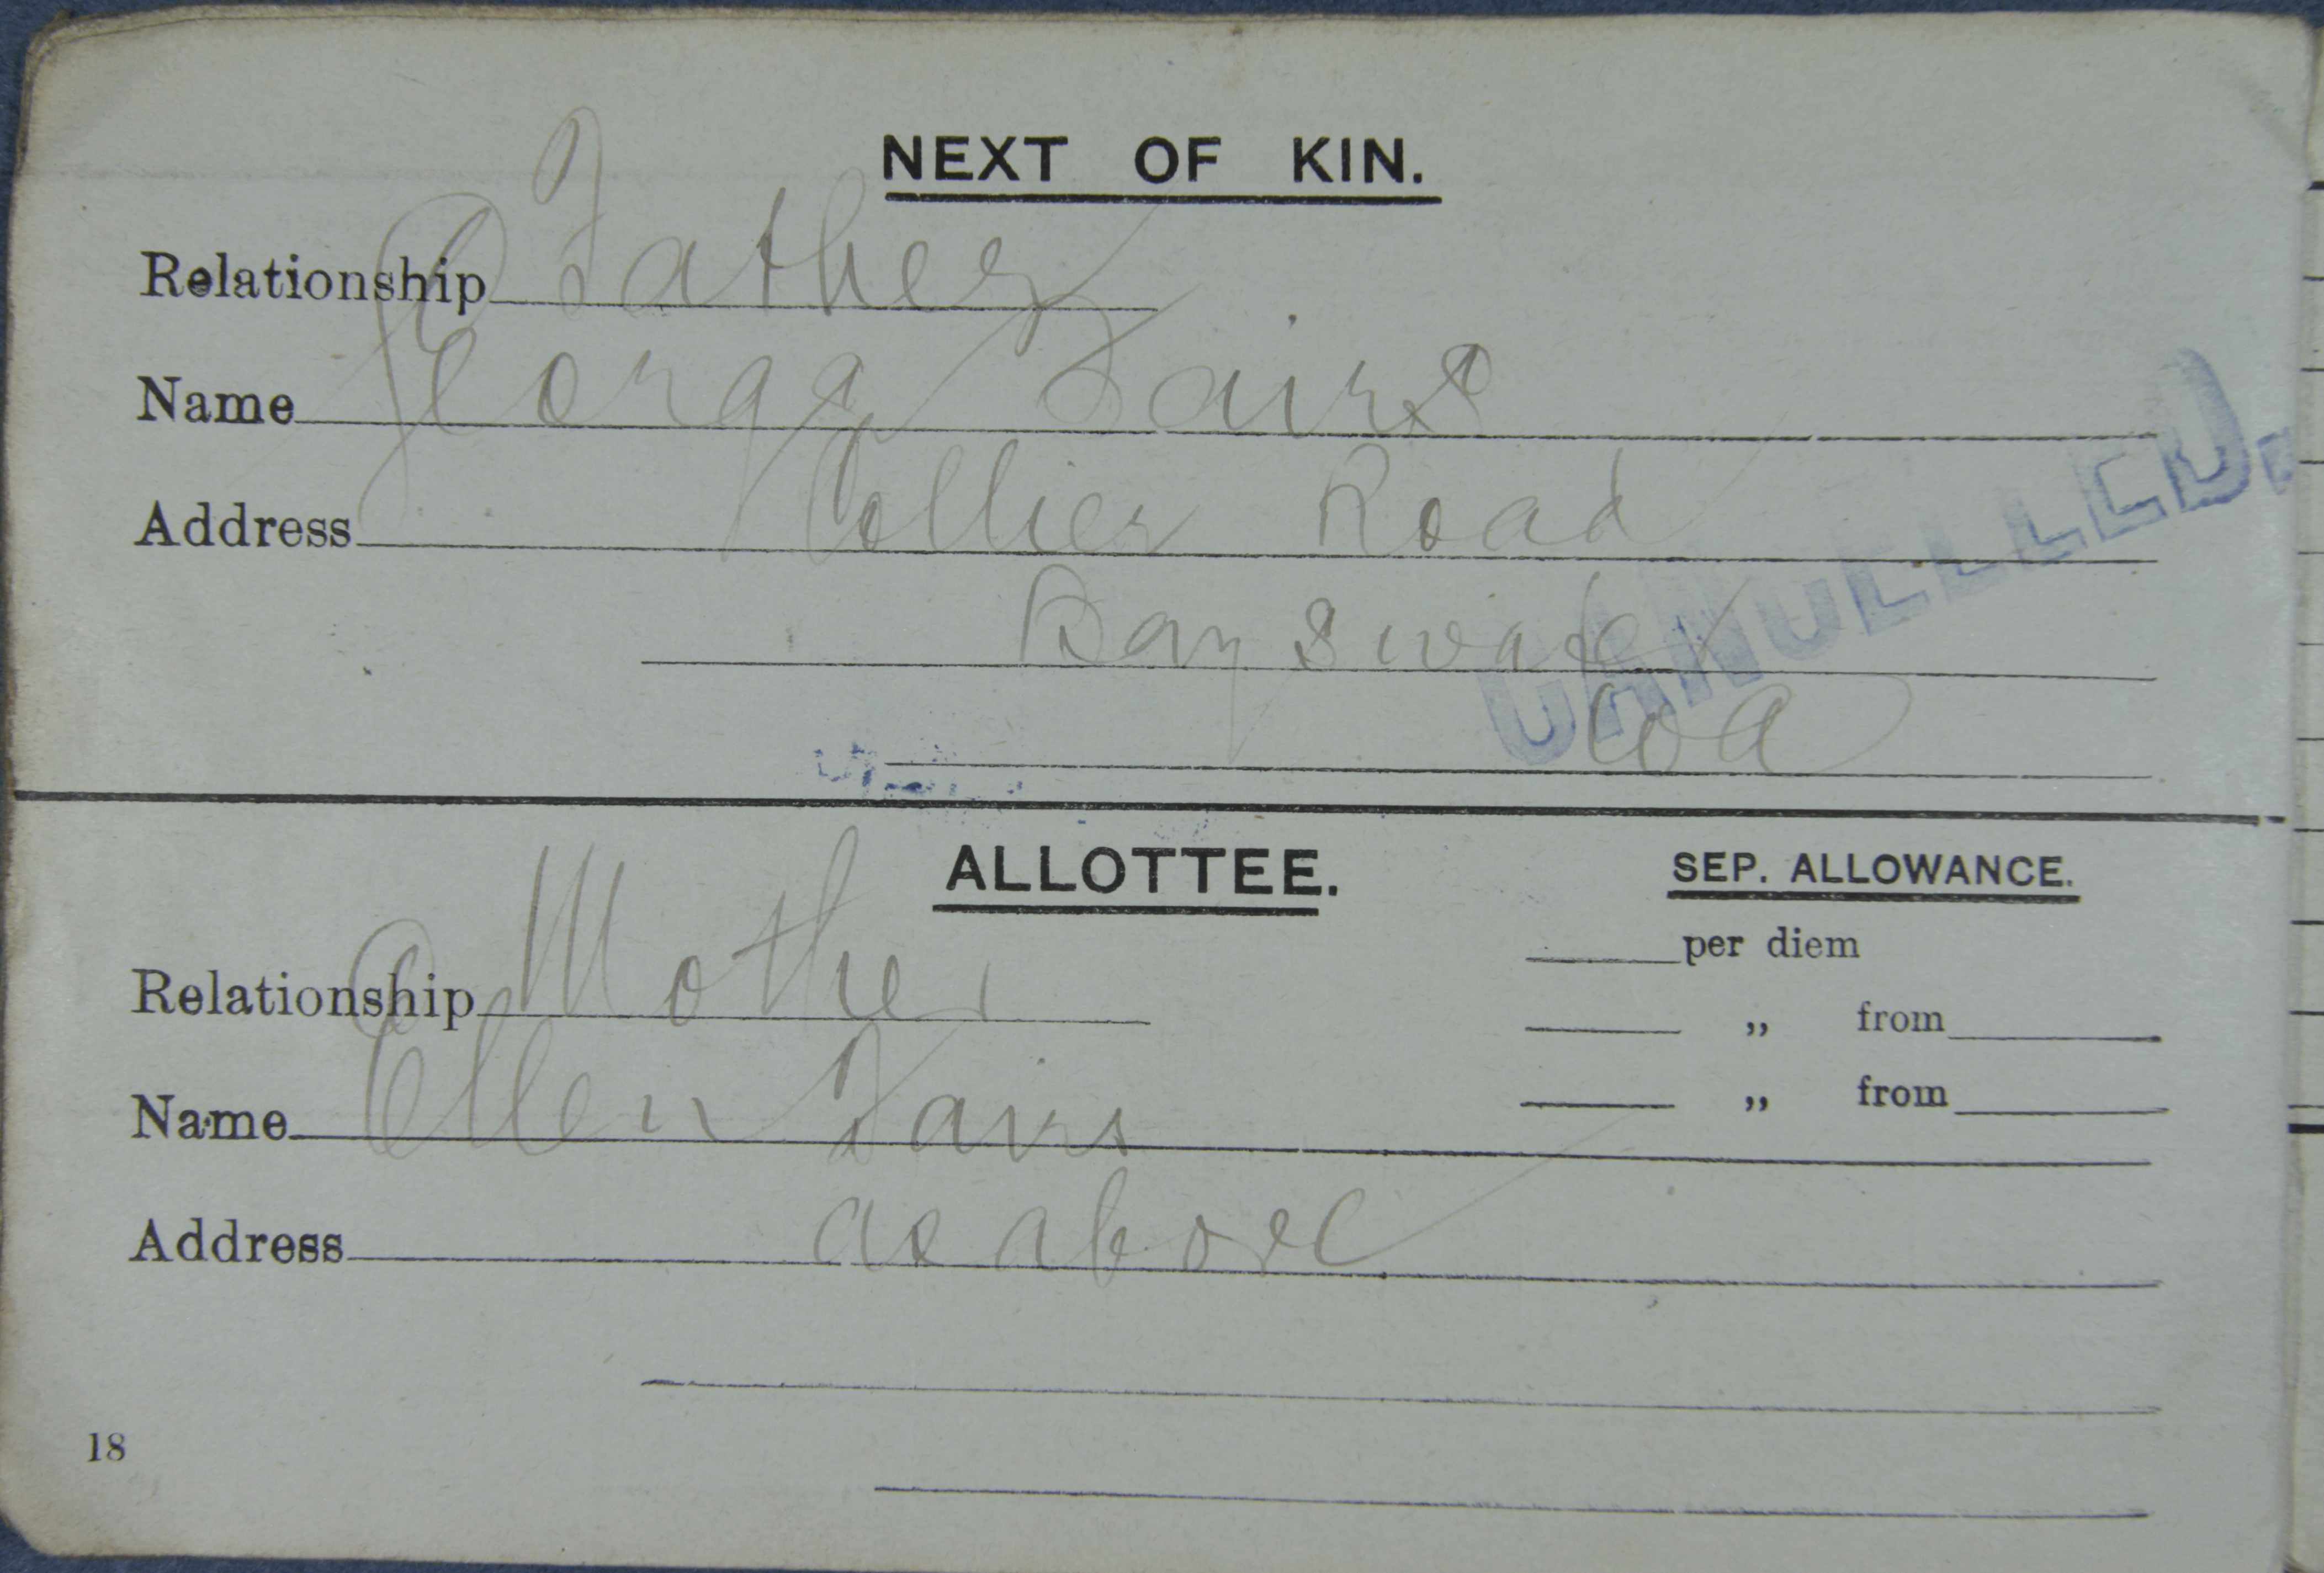 NEXT OF KIN.
Relationship Father
Name George Fairs
Address Collier Road
Bayswater
WA
CANCELLED.
ALLOTTEE.
SEP. ALLOWANCE.
per diem
Relationship Mother
„ from
Name Ellen Fairs
„ from
Address as above
18